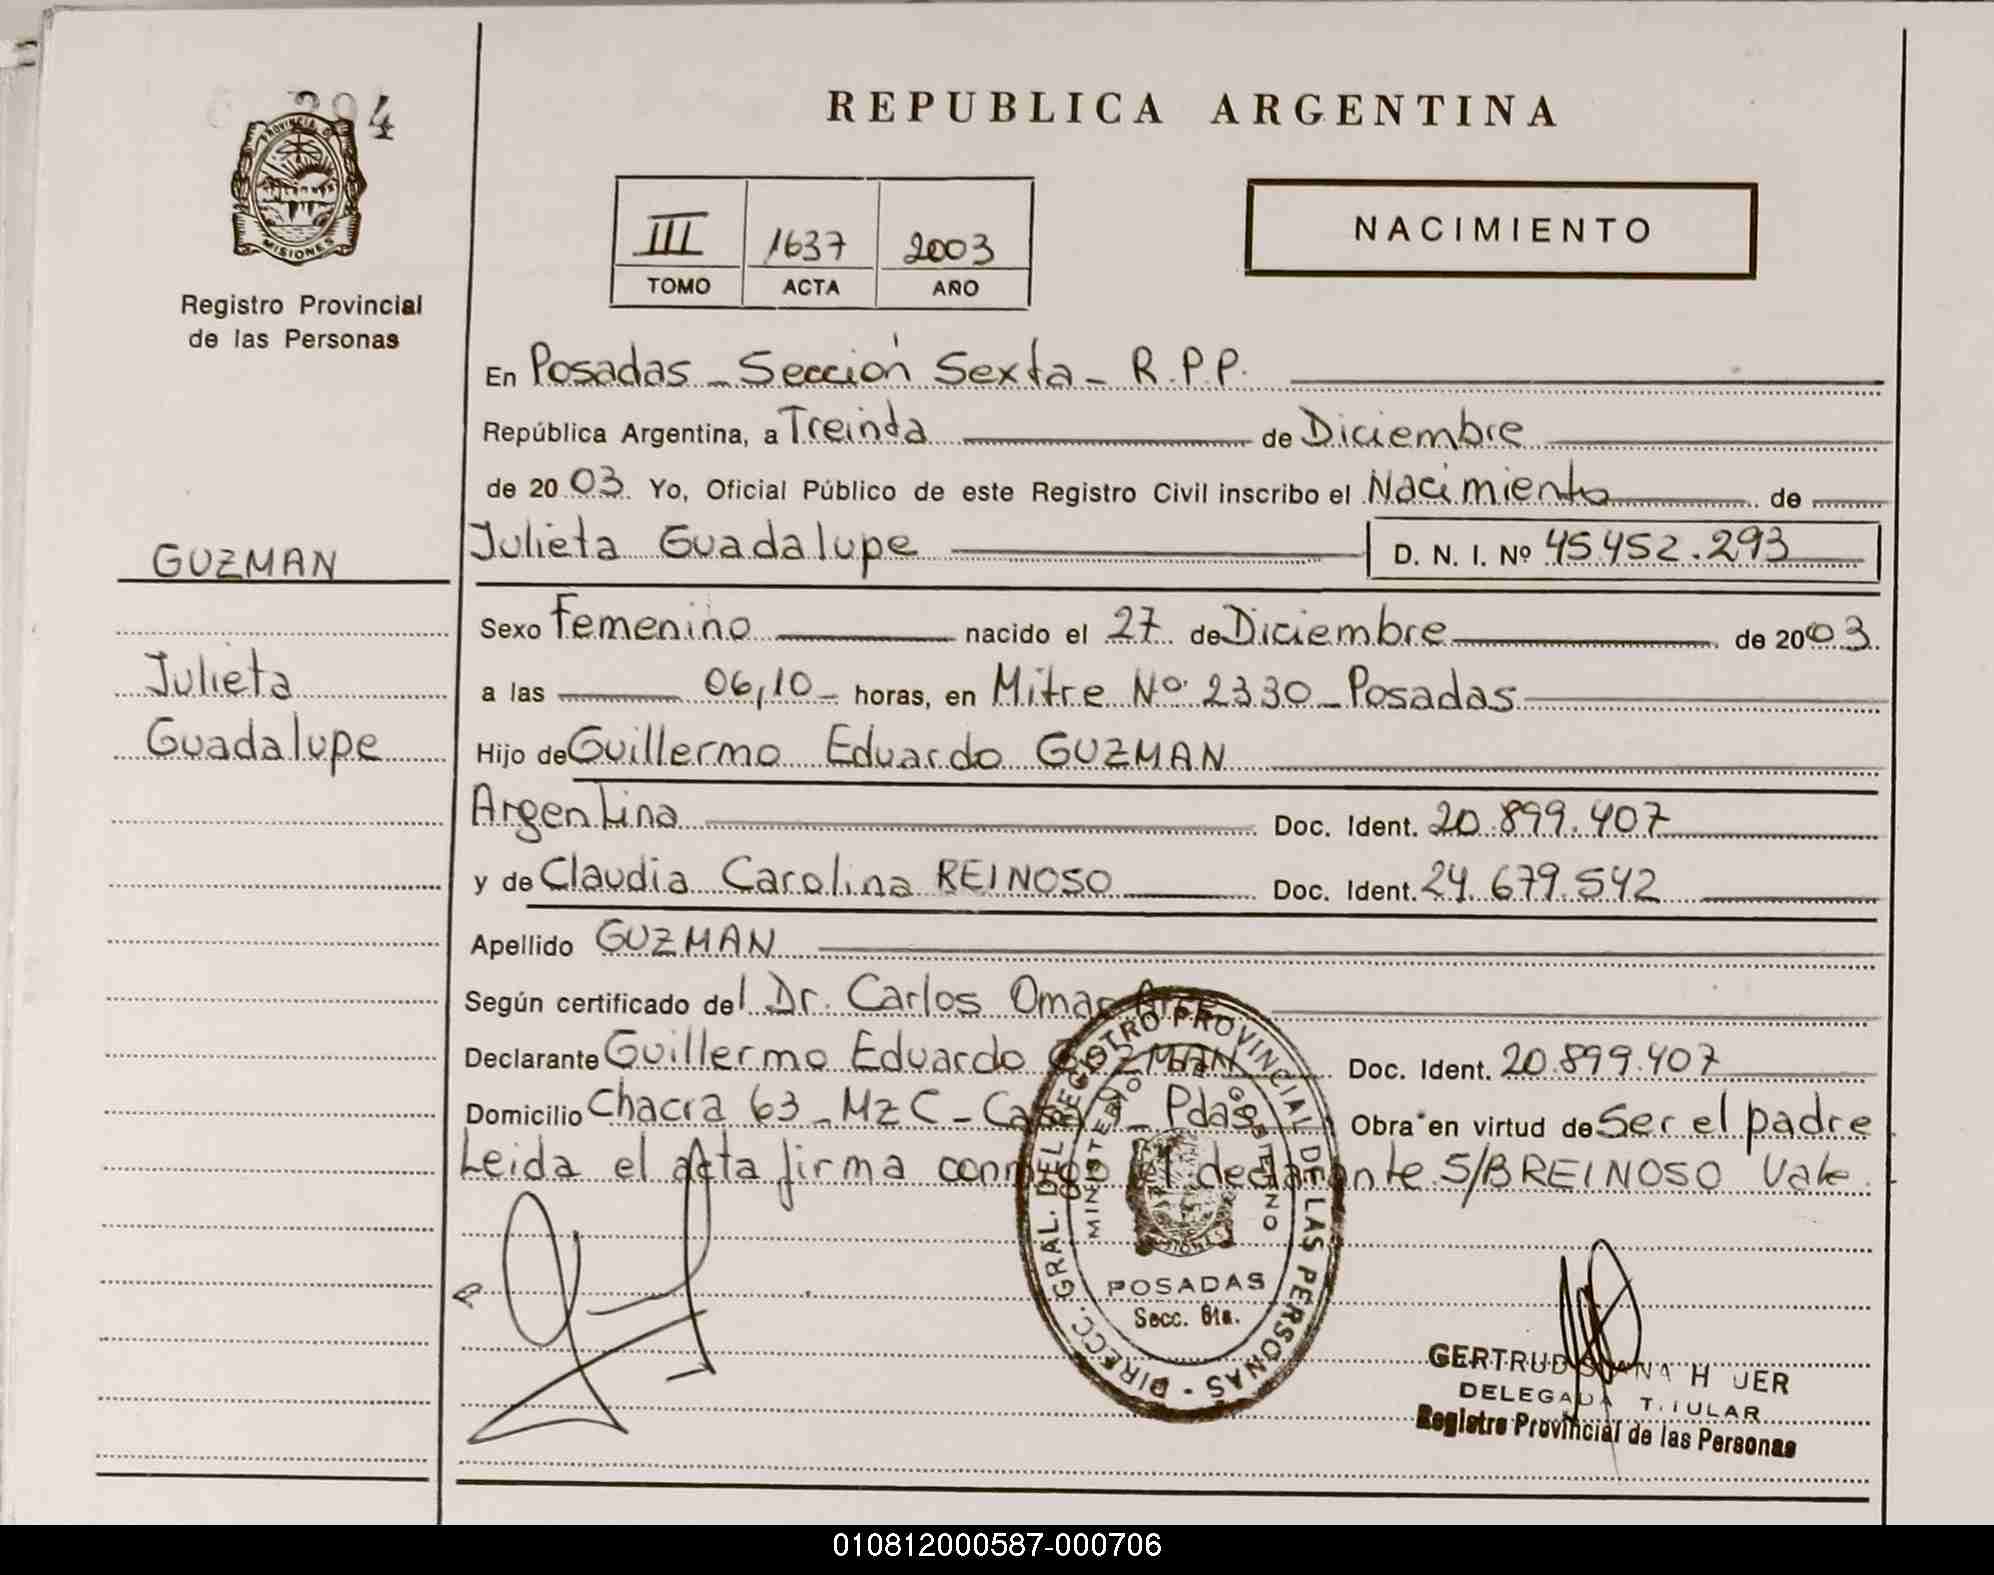 294
PROVINCIA DE
MISIONES
Registro Provincial
de las Personas
REPUBLICA ARGENTINA
III 1637 2003
TOMO ACTA AÑO
NACIMIENTO
En Posadas - Sección Sexta - R.P.P.
República Argentina, a Treinta de Diciembre
de 2003. Yo, Oficial Público de este Registro Civil inscribo el Nacimiento de
GUZMAN
Julieta Guadalupe D. N. I. Nº 45.452.293
Sexo Femenino nacido el 27 de Diciembre de 2003.
Julieta
a las 06,10 - horas, en Mitre Nº 2330 - Posadas
Guadalupe
Hijo de Guillermo Eduardo GUZMAN
Argentina Doc. Ident. 20.899.407
y de Claudia Carolina REINOSO Doc. Ident. 24.679.542
Apellido GUZMAN
Según certificado del Dr. Carlos Omar Arce
Declarante Guillermo Eduardo GUZMAN Doc. Ident. 20.899.407
Domicilio Chacra 63 - Mz C - Casa - Pdas Obra en virtud de Ser el padre
Leida el acta firma conmigo el declarante S/B REINOSO Vale.
DIRECC. GRAL. DEL REGISTRO PROVINCIAL DE LAS PERSONAS -
MINISTERIO DE GOBIERNO
MISIONES
POSADAS
Secc. 6ta.
GERTRUD H UER
DELEGADA TITULAR
Registro Provincial de las Personas
010812000587-000706